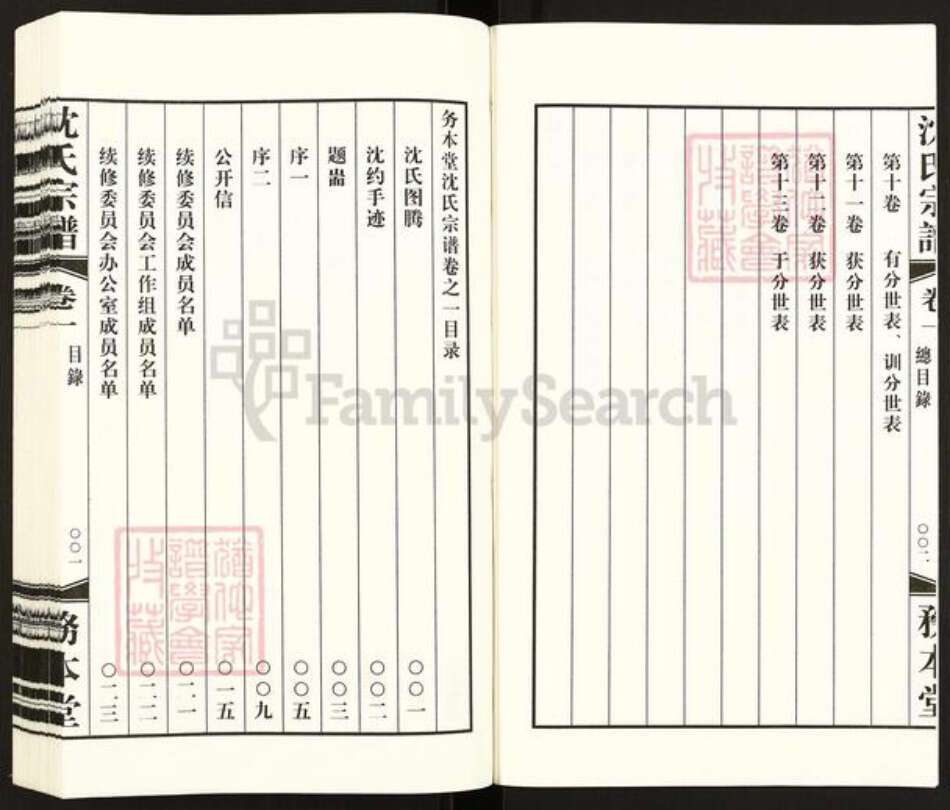 沈氏宗譜 卷一 總目錄 〇〇二 務本堂
第十卷 有分世表、训分世表
第十一卷 获分世表
第十二卷 获分世表
第十三卷 于分世表
务本堂沈氏宗谱卷之一目录
沈氏图腾 〇〇一
沈约手迹 〇〇二
题耑 〇〇三
序一 〇〇五
序二 〇〇九
公开信 〇一五
续修委员会成员名单 〇二一
续修委员会工作组成员名单 〇二二
续修委员会办公室成员名单 〇二三
沈氏宗譜 卷一 目錄 〇〇一 務本堂
FamilySearch